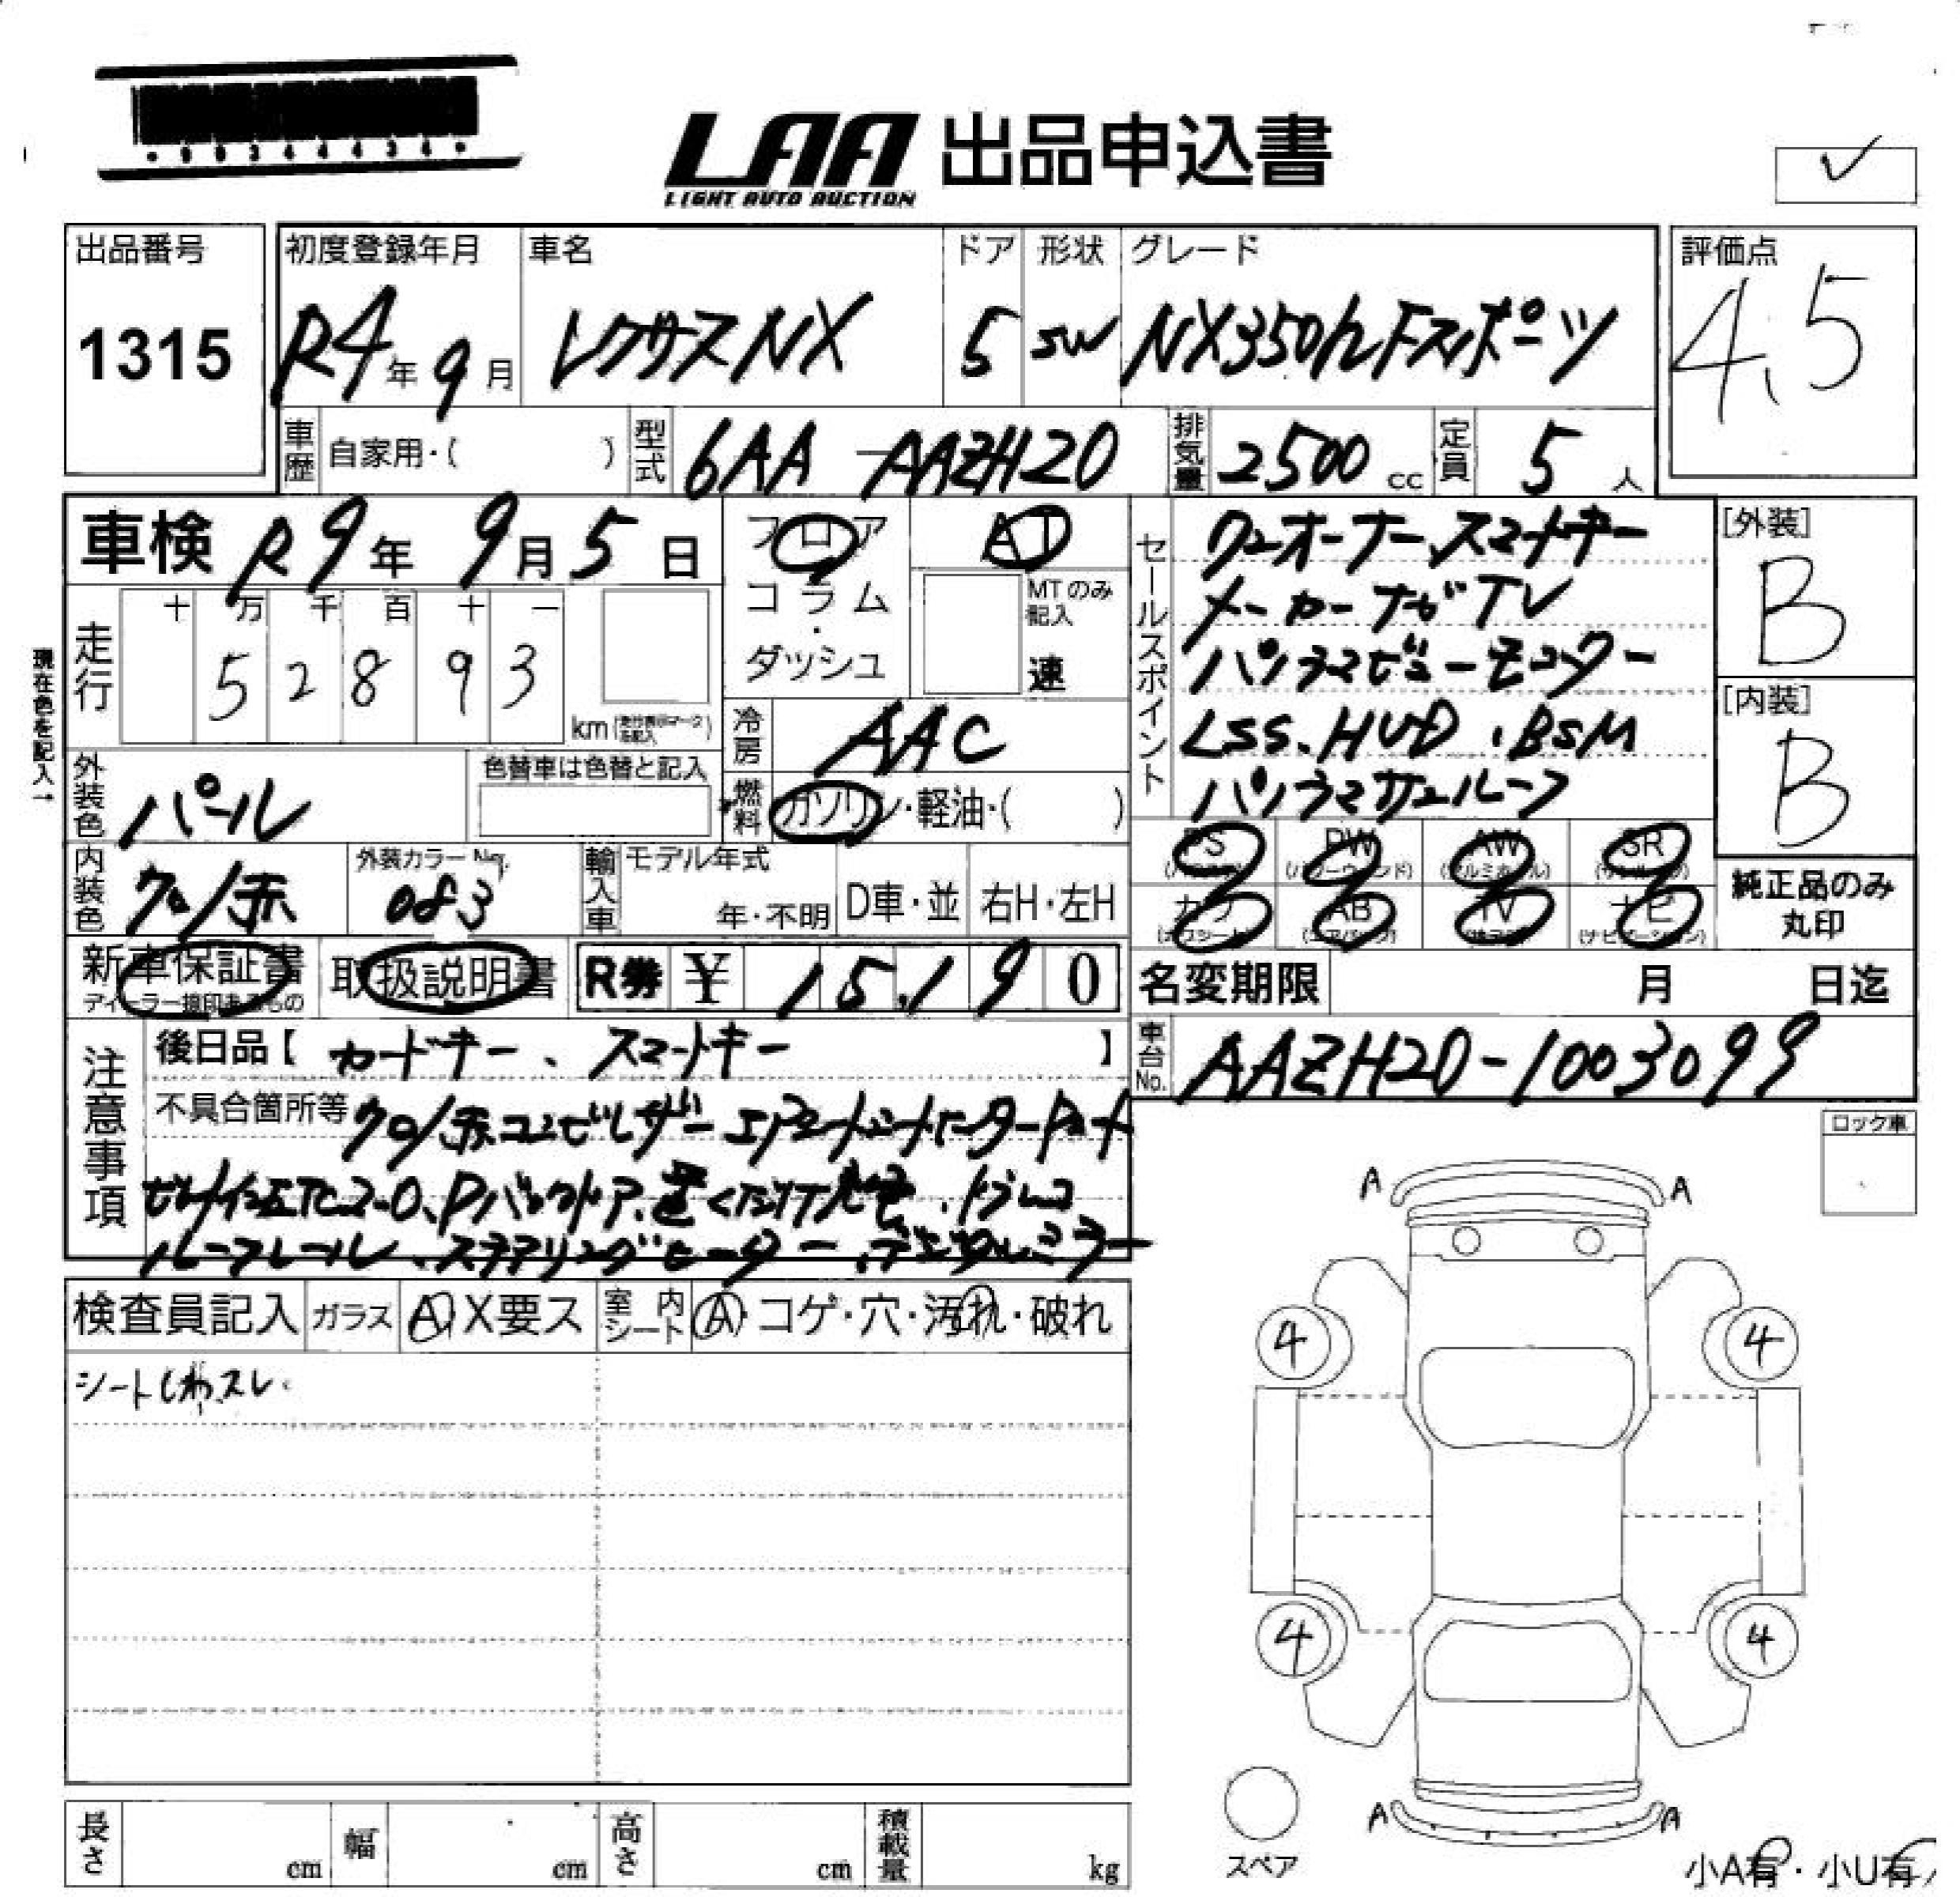 LAA 出品申込書
LIGHT AUTO AUCTION
出品番号
1315
初度登録年月
R4年9月
車名
レクサスNX
ドア
5
形状
SW
グレード
NX350hFスポーツ
評価点
4.5
車歴 自家用・( )
型式 6AA-AAZH20
排気量 2500cc
定員 5人
車検 R9年9月5日
フロア
コラム
・
ダッシュ
AT
MTのみ
記入
速
セールスポイント
ワンオーナー、スマートキー
メーカーナビTV
パノラマビューモニター
LSS、HUD、BSM
パノラマサンルーフ
[外装]
B
[内装]
B
現在色を記入→
走行
十 万 千 百 十 一
5 2 8 9 3
km
冷房 AAC
燃料 ガソリン・軽油・( )
外装色 パール
色替車は色替と記入
内装色 クロ/赤
外装カラーNo.
083
輸入車 モデル年式
年・不明
D車・並
右H・左H
PS PW AW SR
カワ AB TV ナビ
(ナビゲーション)
純正品のみ
丸印
新車保証書
ディーラー捺印あるもの
取扱説明書
R券 ¥ 15,190
名変期限 月 日迄
注意事項
後日品【カードキー、スマートキー】
車台No. AAZH20-1003099
不具合箇所等 クロ/赤コンビレザー エアシートシートヒーター Pシート
ビルトインETC2.0、Pバックドア、置くだけ充電、ドラレコ
ルーフレール、ステアリングヒーター、デジタルミラー
ロック車
検査員記入
ガラス A X要ス
室内シート A・コゲ・穴・汚れ・破れ
シートしわ、スレ.
A A
4 4
4 4
A A
スペア
小A有・小U有
長さ cm
幅 cm
高さ cm
積載量 kg